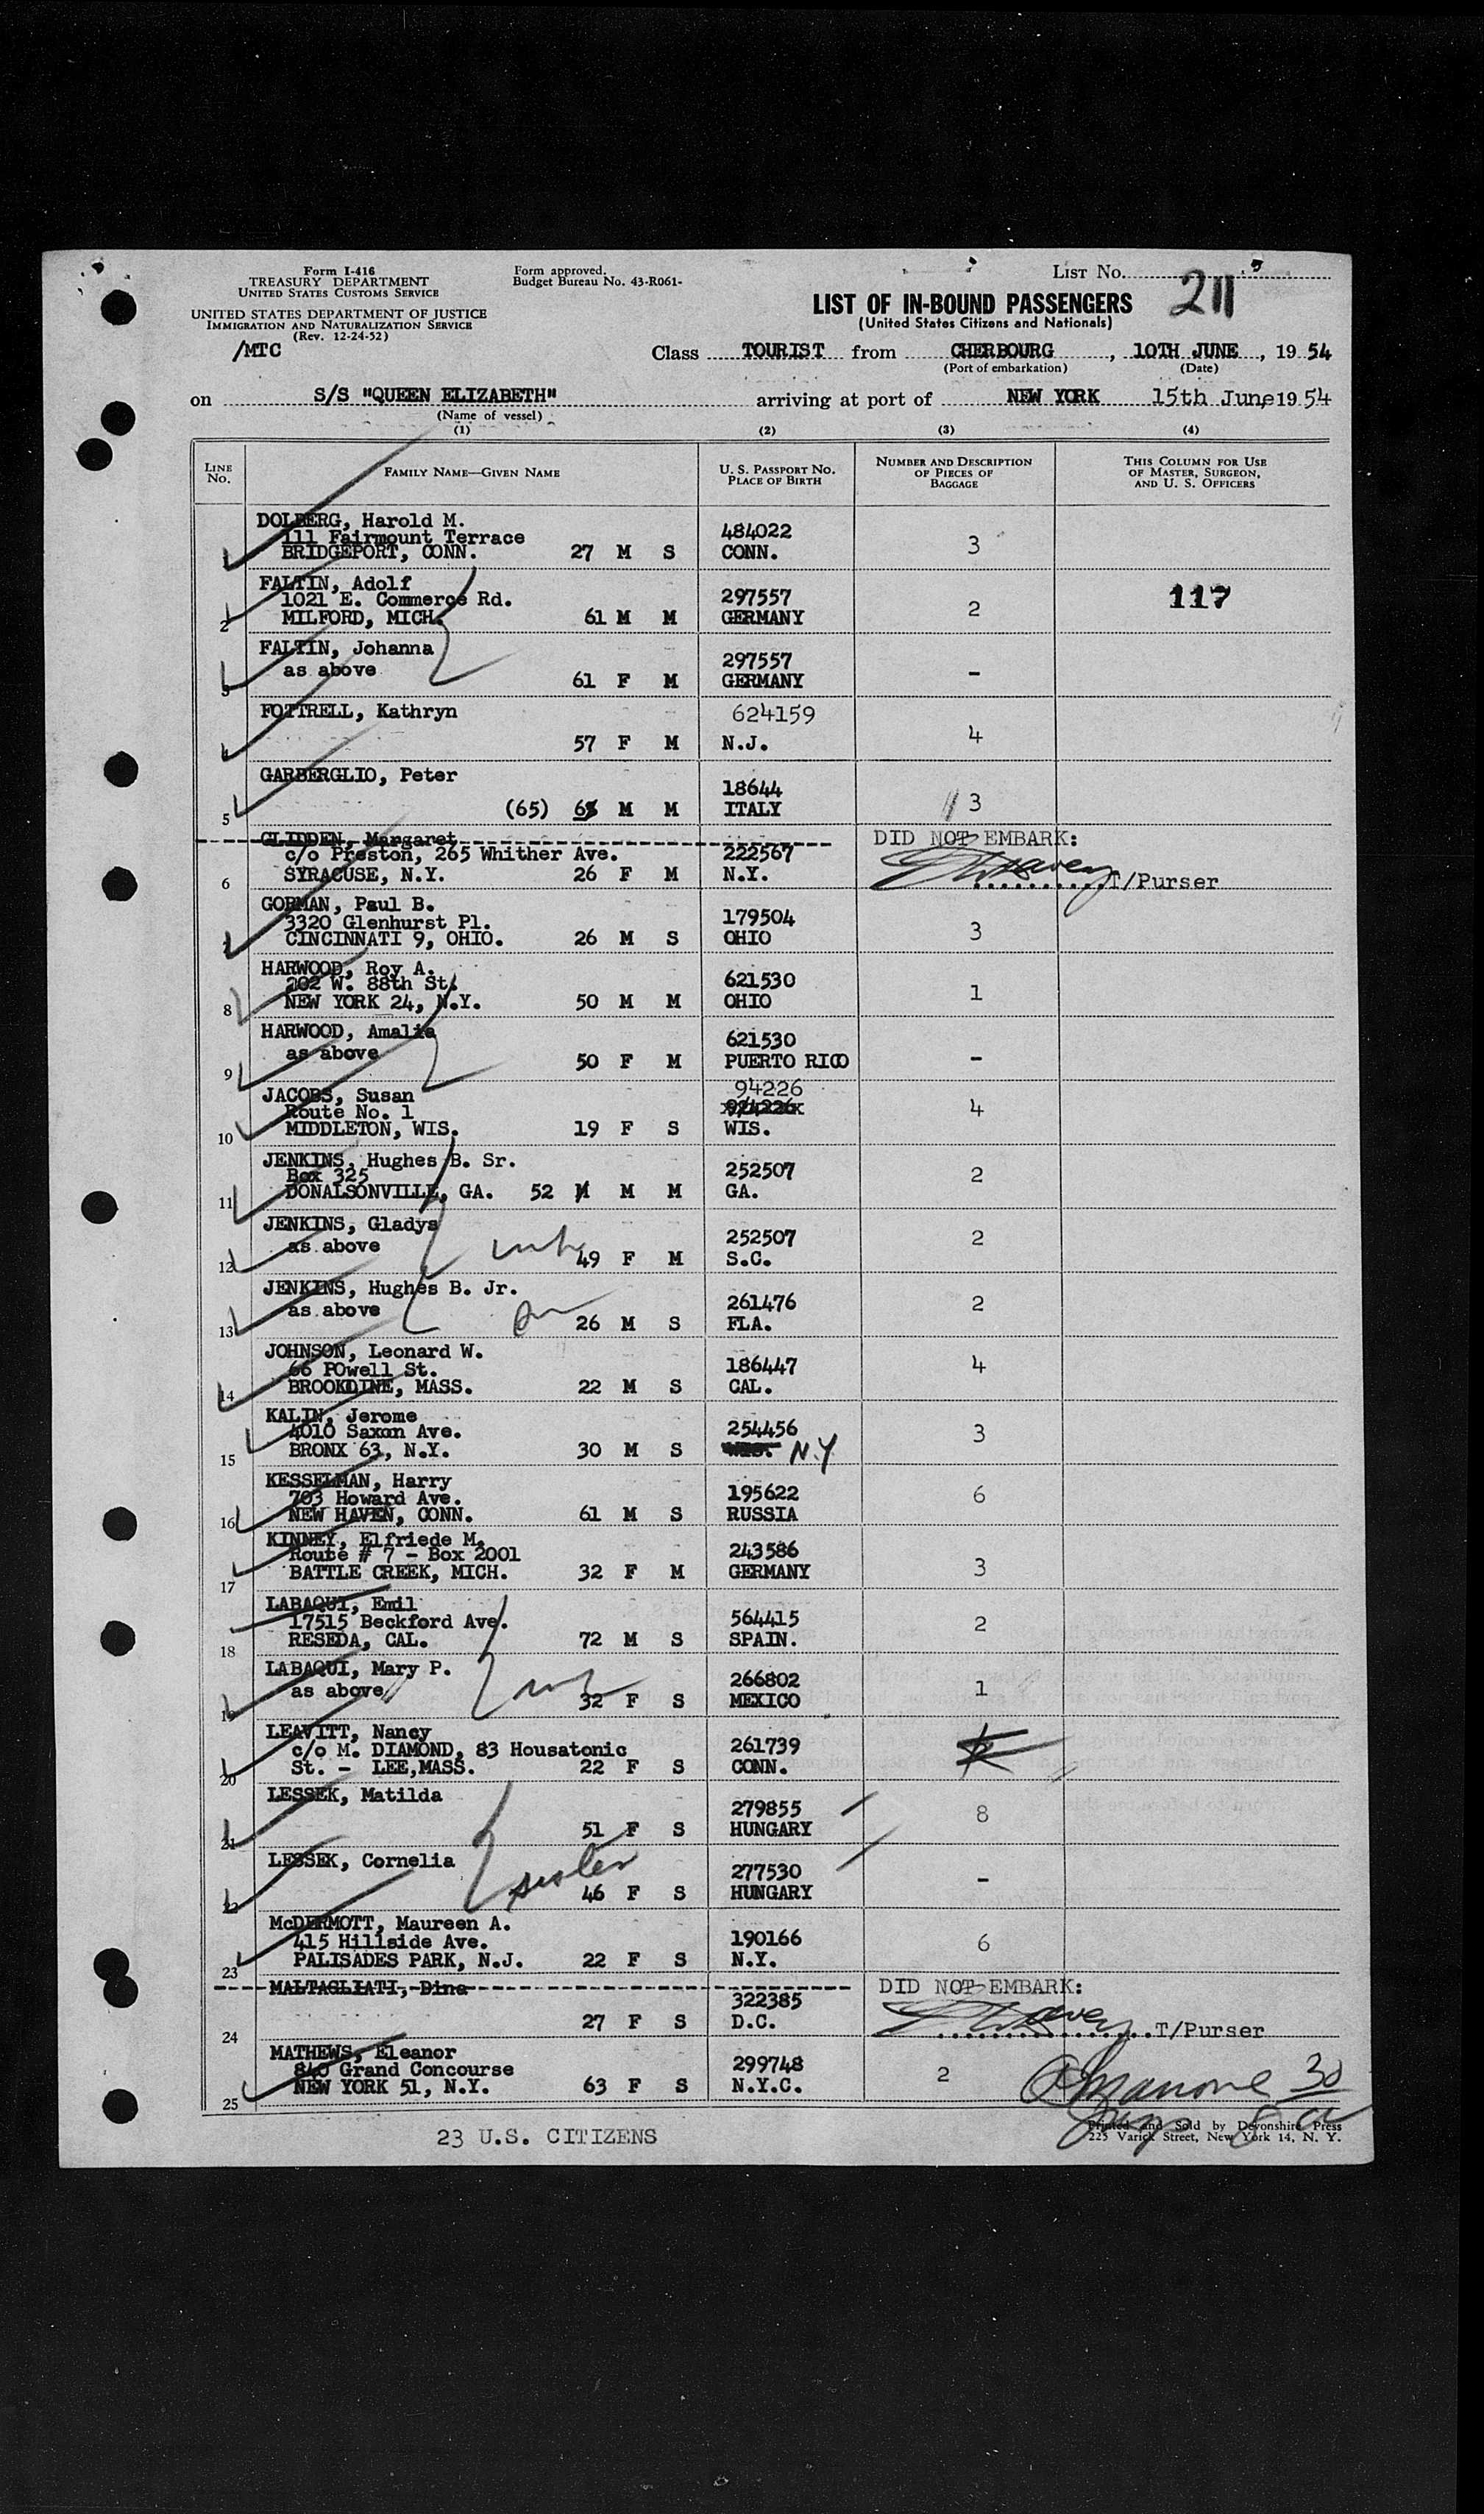 Form I-416
TREASURY DEPARTMENT
UNITED STATES CUSTOMS SERVICE
UNITED STATES DEPARTMENT OF JUSTICE
IMMIGRATION AND NATURALIZATION SERVICE
(Rev. 12-24-52)
/MTC
Form approved.
Budget Bureau No. 43-R061-
LIST NO. 211
LIST OF IN-BOUND PASSENGERS
(United States Citizens and Nationals)
Class TOURIST from CHERBOURG, 10TH JUNE, 19 54
(Port of embarkation) (Date)
on S/S "QUEEN ELIZABETH" arriving at port of NEW YORK 15th June, 19 54
(Name of vessel)
(1) (2) (3) (4)
LINE NO. FAMILY NAME—GIVEN NAME U. S. PASSPORT NO. PLACE OF BIRTH NUMBER AND DESCRIPTION OF PIECES OF BAGGAGE THIS COLUMN FOR USE OF MASTER, SURGEON, AND U. S. OFFICERS
DOLBERG, Harold M.
111 Fairmount Terrace 484022
BRIDGEPORT, CONN. 27 M S CONN. 3
FALTIN, Adolf
1021 E. Commerce Rd. 297557 117
2 MILFORD, MICH. 61 M M GERMANY 2
FALTIN, Johanna
as above 297557
3 61 F M GERMANY -
FOTTRELL, Kathryn 624159
4 57 F M N.J. 4
GARBERGLIO, Peter 18644
5 (65) M M ITALY 3
GLIDDEN, Margaret DID NOT EMBARK:
c/o Preston, 265 Whither Ave. 222567
6 SYRACUSE, N.Y. 26 F M N.Y. T/Purser
GORMAN, Paul B.
3320 Glenhurst Pl. 179504
7 CINCINNATI 9, OHIO. 26 M S OHIO 3
HARWOOD, Roy A.
202 W. 88th St. 621530
8 NEW YORK 24, N.Y. 50 M M OHIO 1
HARWOOD, Amalia
as above 621530
9 50 F M PUERTO RICO -
JACOBS, Susan 94226
Route No. 1 924226
10 MIDDLETON, WIS. 19 F S WIS. 4
JENKINS, Hughes B. Sr.
Box 325 252507
11 DONALSONVILLE, GA. 52 M M M GA. 2
JENKINS, Gladys
as above 252507
12 49 F M S.C. 2
JENKINS, Hughes B. Jr.
as above 261476
13 26 M S FLA. 2
JOHNSON, Leonard W.
66 POwell St. 186447
14 BROOKLINE, MASS. 22 M S CAL. 4
KALIN, Jerome
4010 Saxon Ave. 254456
15 BRONX 63, N.Y. 30 M S N.Y 3
KESSELMAN, Harry
703 Howard Ave. 195622
16 NEW HAVEN, CONN. 61 M S RUSSIA 6
KINNEY, Elfriede M.
Route # 7 - Box 2001 243586
17 BATTLE CREEK, MICH. 32 F M GERMANY 3
LABAQUI, Emil
17515 Beckford Ave. 564415
18 RESEDA, CAL. 72 M S SPAIN. 2
LABAQUI, Mary P.
as above 266802
19 32 F S MEXICO 1
LEAVITT, Nancy
c/o M. DIAMOND, 83 Housatonic 261739
20 St. - LEE,MASS. 22 F S CONN.
LESSEK, Matilda 279855
21 51 F S HUNGARY 8
LESSEK, Cornelia 277530
22 sister 46 F S HUNGARY -
McDERMOTT, Maureen A.
415 Hillside Ave. 190166
23 PALISADES PARK, N.J. 22 F S N.Y. 6
MALTAGLIATI, Dina DID NOT EMBARK:
322385
24 27 F S D.C. T/Purser
MATHEWS, Eleanor
840 Grand Concourse 299748
25 NEW YORK 51, N.Y. 63 F S N.Y.C. 2
23 U.S. CITIZENS
Printed and Sold by Devonshire Press
225 Varick Street, New York 14, N. Y.